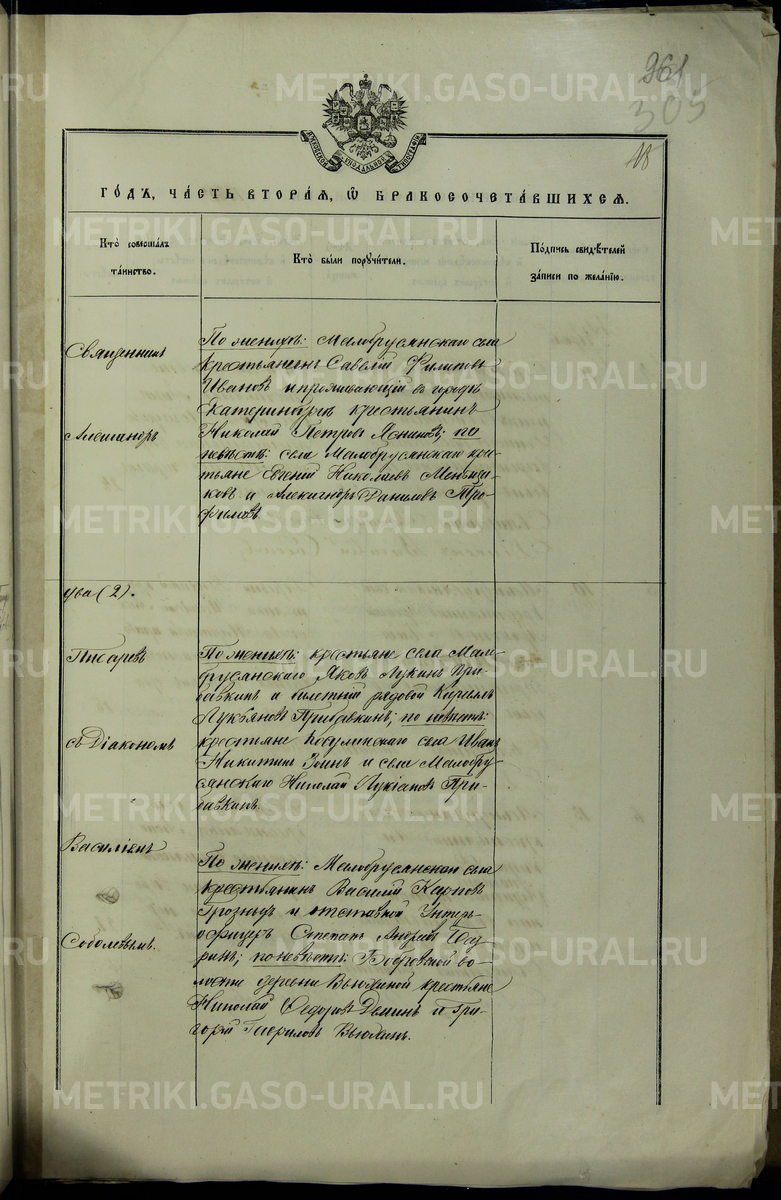 261
305
18
СИНОДАЛЬНОЙ
ТИПОГРАФІИ
ГОДЪ, ЧАСТЬ ВТОРАЯ, Ѡ БРАКОСОЧЕТАВШИХСЯ.
Кто совершалъ
таинство.
Кто были поручители.
Подпись свидѣтелей
записи по желанію.
Священникъ
Александръ
два (2).
Писаревъ
съ Діакономъ
Василіемъ
Соболевымъ.
По женихѣ: Малобрусянскаго села
крестьянинъ Савелій Филиповъ
Ивановъ и проживающій въ городѣ
Екатеринбургѣ крестьянинъ
Николай Петровъ; по
невѣстѣ: села Малобрусянскаго кре-
стьяне Евгеній Николаевъ Меньши-
ковъ и Александръ Даниловъ Тро-
фимовъ
По женихѣ: крестьяне села Мало-
брусянскаго Яковъ Лукинъ При-
бавкинъ и билетный рядовой Кириллъ
Лукьяновъ Прибавкинъ; по невѣстѣ:
крестьяне Косулинскаго села Иванъ
Никитинъ Зоинъ и села Малобру-
сянскаго Николай Лукіановъ При-
бавкинъ.
По женихѣ: Малобрусянскаго села
крестьянинъ Василій Карповъ
Грозныхъ и отставной Унтеръ-
офицеръ Степанъ Андреевъ
по невѣстѣ: Бобровской во-
лости деревни Вьюхиной крестьяне
Николай Ѳедоровъ Деминъ и Гри-
горій Гавриловъ Вьюхинъ.
METRIKI.GASO-URAL.RU